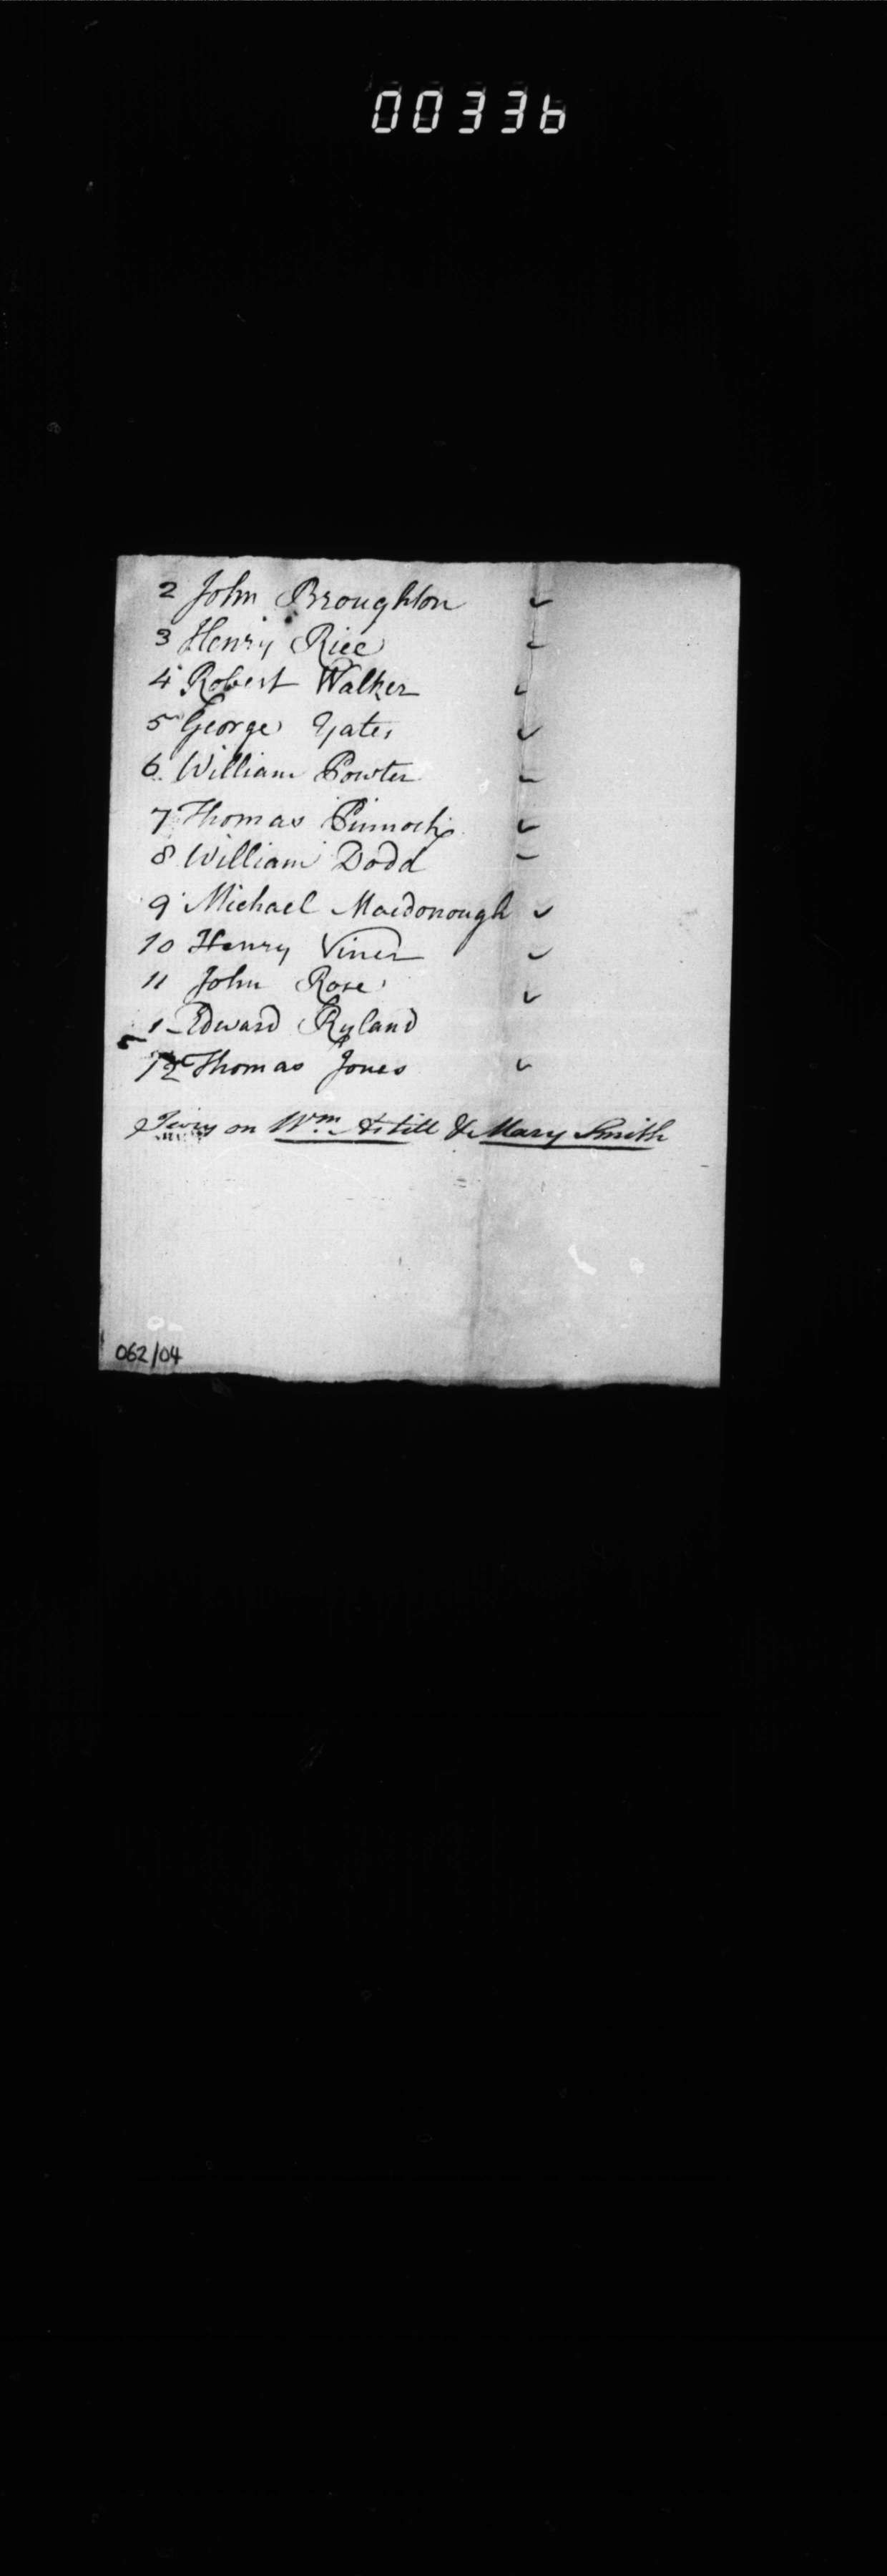 00336
2 John Broughton ✓
3 Henry Rice ✓
4 Robert Walker ✓
5 George Yates ✓
6 William Powter ✓
7 Thomas Pinnock ✓
8 William Dodd ✓
9 Michael Macdonough ✓
10 Henry Viner ✓
11 John Rose ✓
1 Edward Ryland
12 Thomas Jones ✓
Jury on Wm. Astill & Mary Smith
062/04